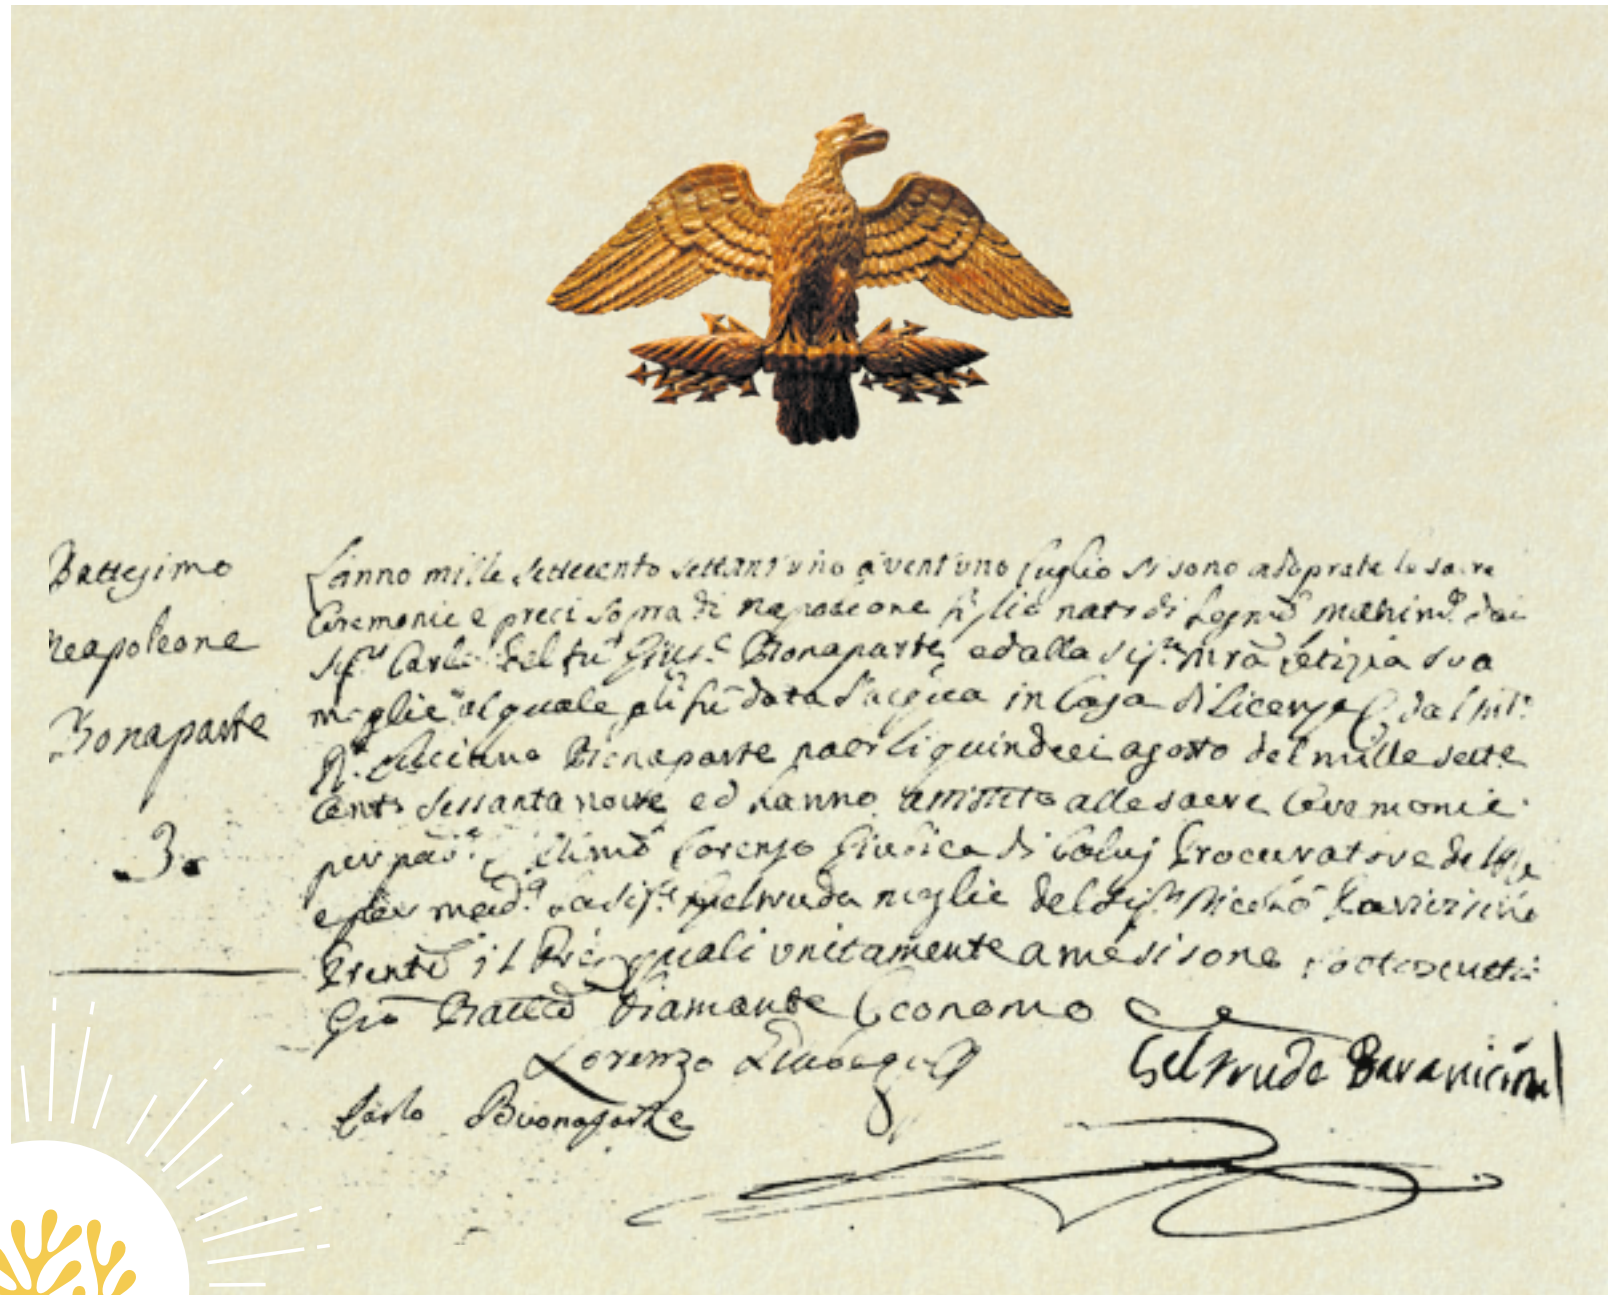 Battesimo
Neapoleone
Bonaparte
3.
L'anno mille settecento settant'uno a vent'uno luglio si sono adoprate le sacre
Ceremonie e preci sopra di Napoleone figlio nato di legmo matrimo dai
Sigr Carlo del fu Giuse Bonaparte, ed alla Sigra Mra Letizia sua
moglie al quale gli fù data l'acqua in Casa di Licenza dal
Luciano Bonaparte natoli quindeci agosto del mille sette
Cento sessanta nove ed hanno assistito alle sacre Ceremonie
per Lorenzo Giubica di Calvj Procuratore del
e per mada la Siga Geltruda moglie del Sigr Nicolò
Presente il quali unitamente a me si sono sottoscritti
Gio Batta Diamante Economo
Lorenzo
Geltruda
Carlo Buonaparte